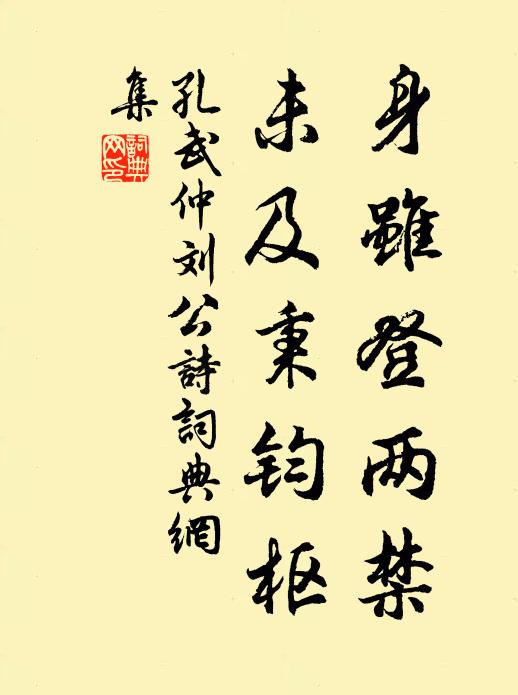 身雖登两禁
未及秉钧枢
孔武仲刘公詩詞典網
集
詞典網印